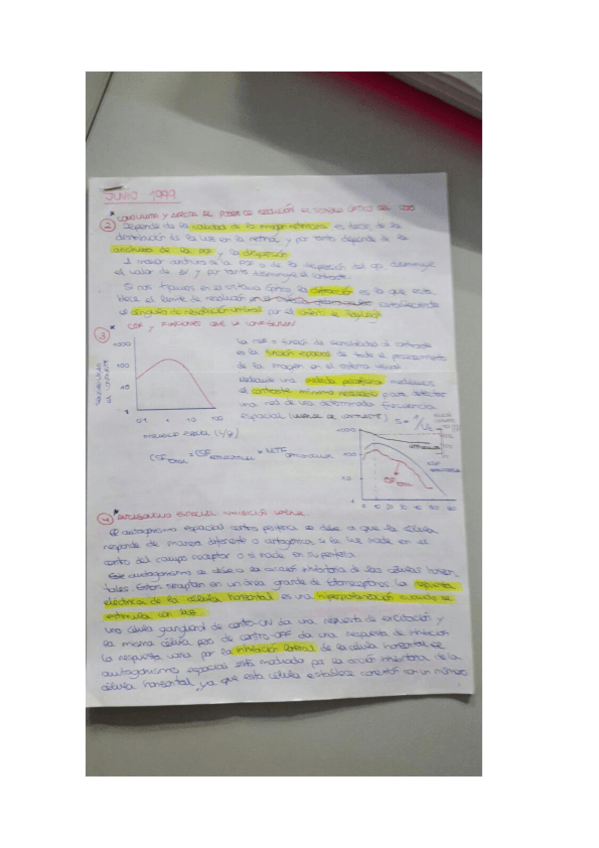 JUNIO 1999
EL PODER DE RESOLUCIÓN EL SISTEMA ÓPTICO DEL OJO
2 Depende de la calidad de la imagen retiniana es decir, de la
distribución de la luz en la retina, y por tanto depende de la
anchura de la PSF y la dispersión
A mayor anchura de la PSF o de la dispersión del ojo, disminuye
el valor de y por tanto disminuye el contraste.
Si nos fijamos en el sistema óptico la difracción es la que esta
blece el límite de resolución estableciendo
el ángulo de resolución mínimo por el criterio de Rayleigh
3 CSF y FUNCIONES QUE LA CONFORMAN
La CSF = función de sensibilidad al contraste
es la función espacial de todo el procesamiento
de la imagen en el sistema visual.
Mediante una medida psicofísica medimos
el contraste mínimo necesario para detectar
una red de una determinada frecuencia
espacial (umbral de contraste) S =
SENSIBILIDAD AL CONTRASTE
1000
100
10
1
0.1 1 10 100
CSF total = CSF * MTF
1000
100
10
1
0 10 20 30 40 50 60
4 ANTAGONISMO ESPACIAL INHIBICIÓN LATERAL
El antagonismo espacial centro periferia se debe a que la célula
responde de manera diferente o antagónica, si la luz incide en el
centro del campo receptor o si incide en su periferia.
Este antagonismo se debe a la acción inhibitoria de las células horizon
tales. Estas sinaptan en un área grande de fotorreceptores La respuesta
eléctrica de la célula horizontal es una hiperpolarización cuando se
estimula con luz.
Una célula ganglionar de centro-ON da una respuesta de excitación y
la misma célula pero de centro-OFF da una respuesta de inhibición
La respuesta varía por la inhibición lateral de la célula horizontal, el
antagonismo espacial está mediado por la acción inhibitoria de la
célula horizontal, ya que esta célula establece conexión con un número